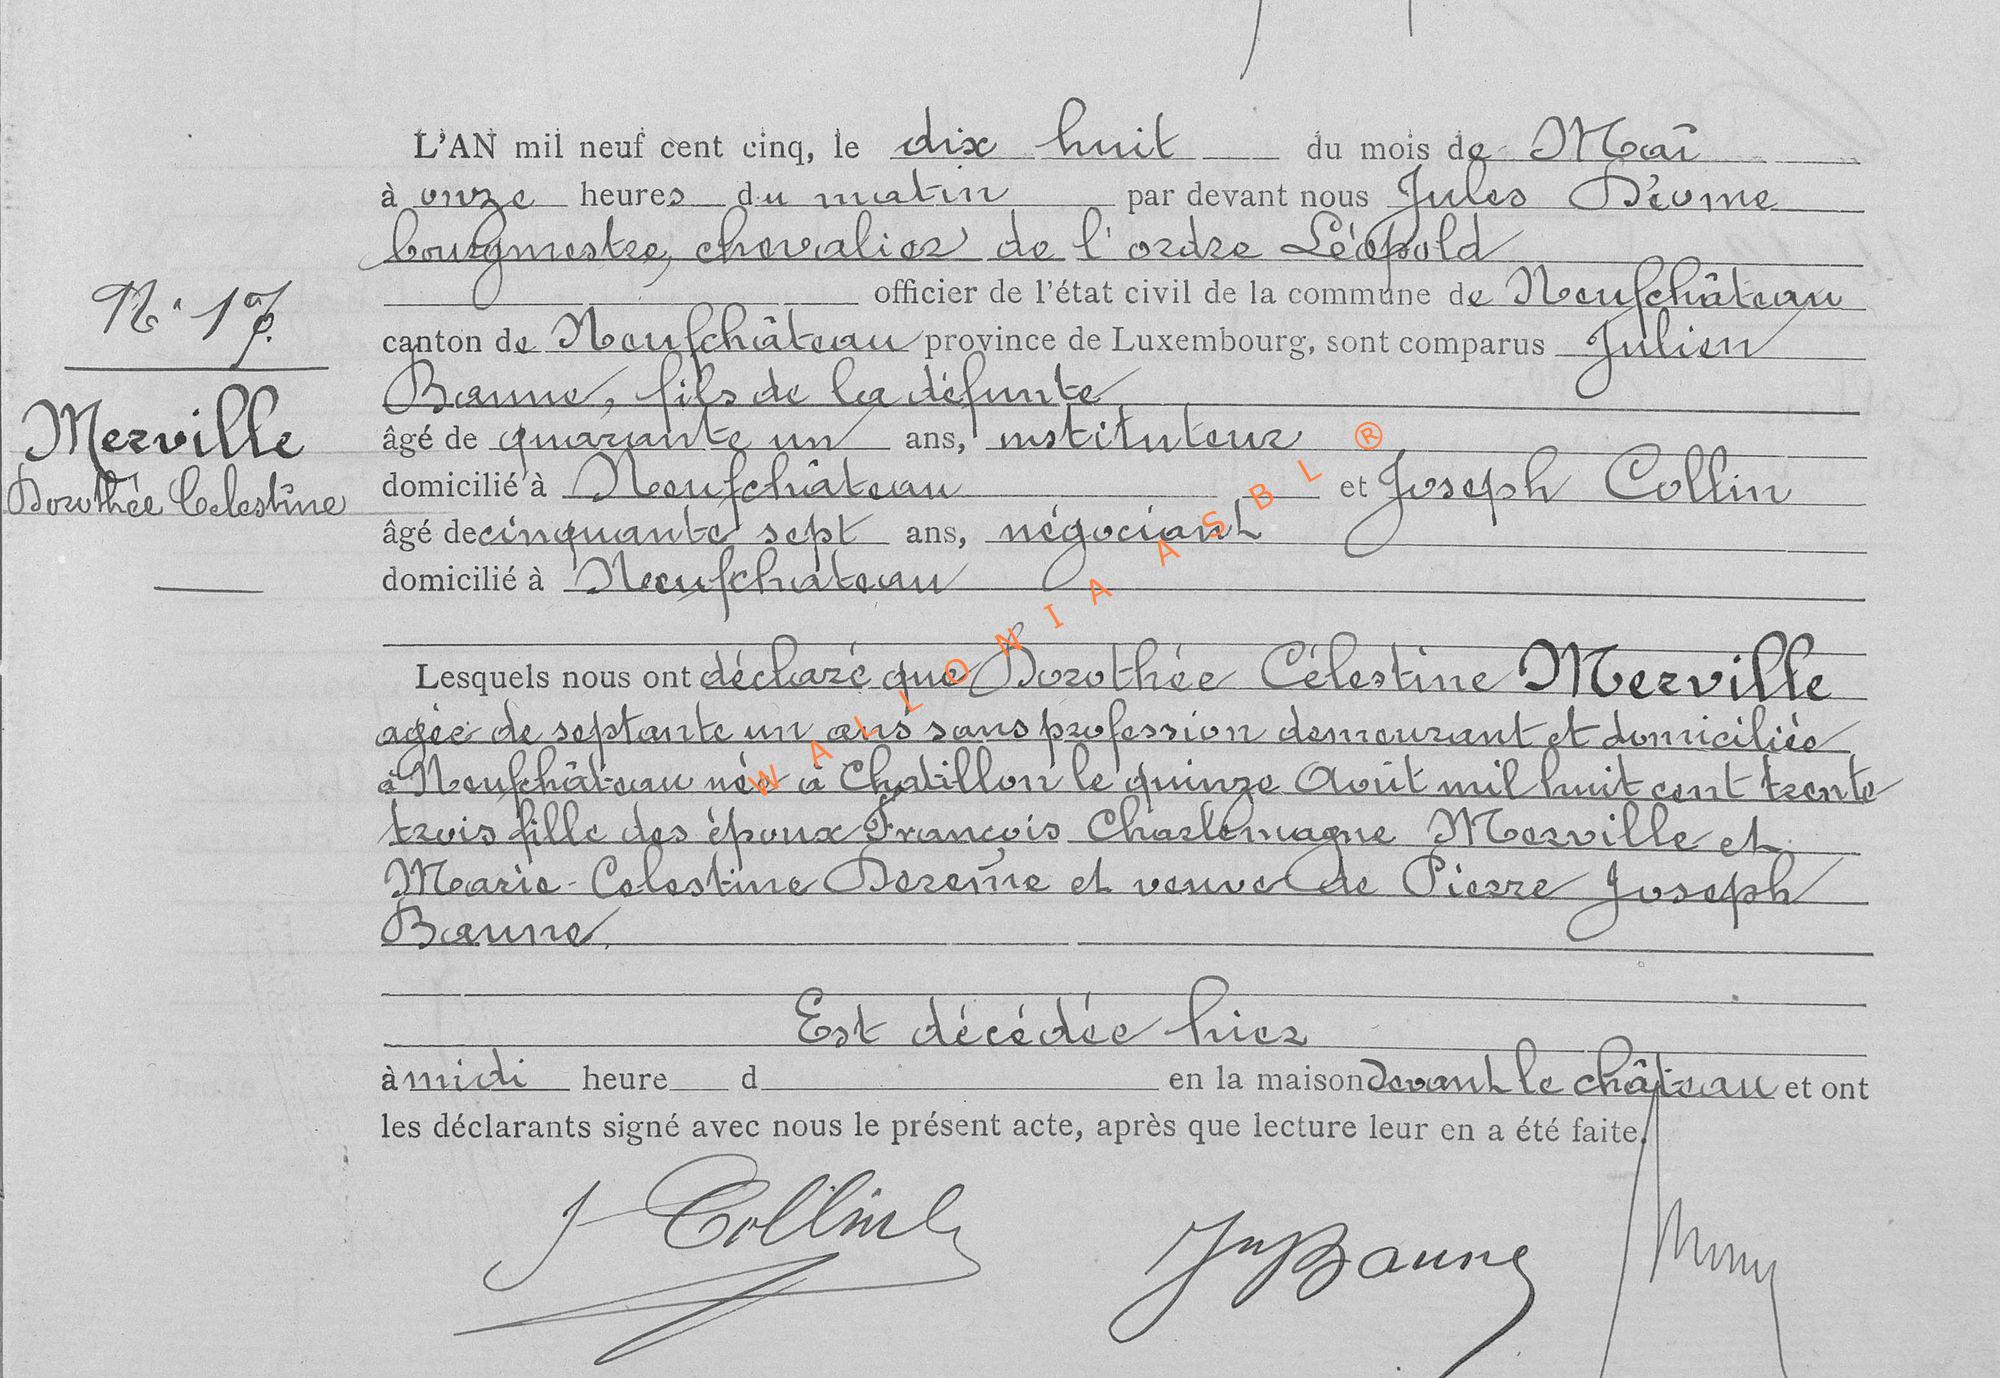 L'AN mil neuf cent cinq, le dix huit du mois de Mai
à onze heures du matin par devant nous Jules
bourgmestre, chevalier de l'ordre Léopold
officier de l'état civil de la commune de Neufchâteau
N° 17.
canton de Neufchâteau province de Luxembourg, sont comparus Julien
Baune, fils de la défunte
Merville
âgé de quarante un ans, instituteur
Dorothée Celestine
domicilié à Neufchâteau et Joseph Collin
âgé de cinquante sept ans, négociant
domicilié à Neufchateau
Lesquels nous ont déclaré que Dorothée Célestine Merville
agée de septante un ans sans profession demeurant et domiciliée
à Neufchâteau née à Chatillon le quinze Août mil huit cent trente
trois fille des époux François Charlemagne Merville et
Marie-Celestine et veuve de Pierre Joseph
Baune.
Est décédée hier
à midi heure d en la maison devant le château et ont
les déclarants signé avec nous le présent acte, après que lecture leur en a été faite.
J Collin Jn Baune
WALLONIA ASBL ®